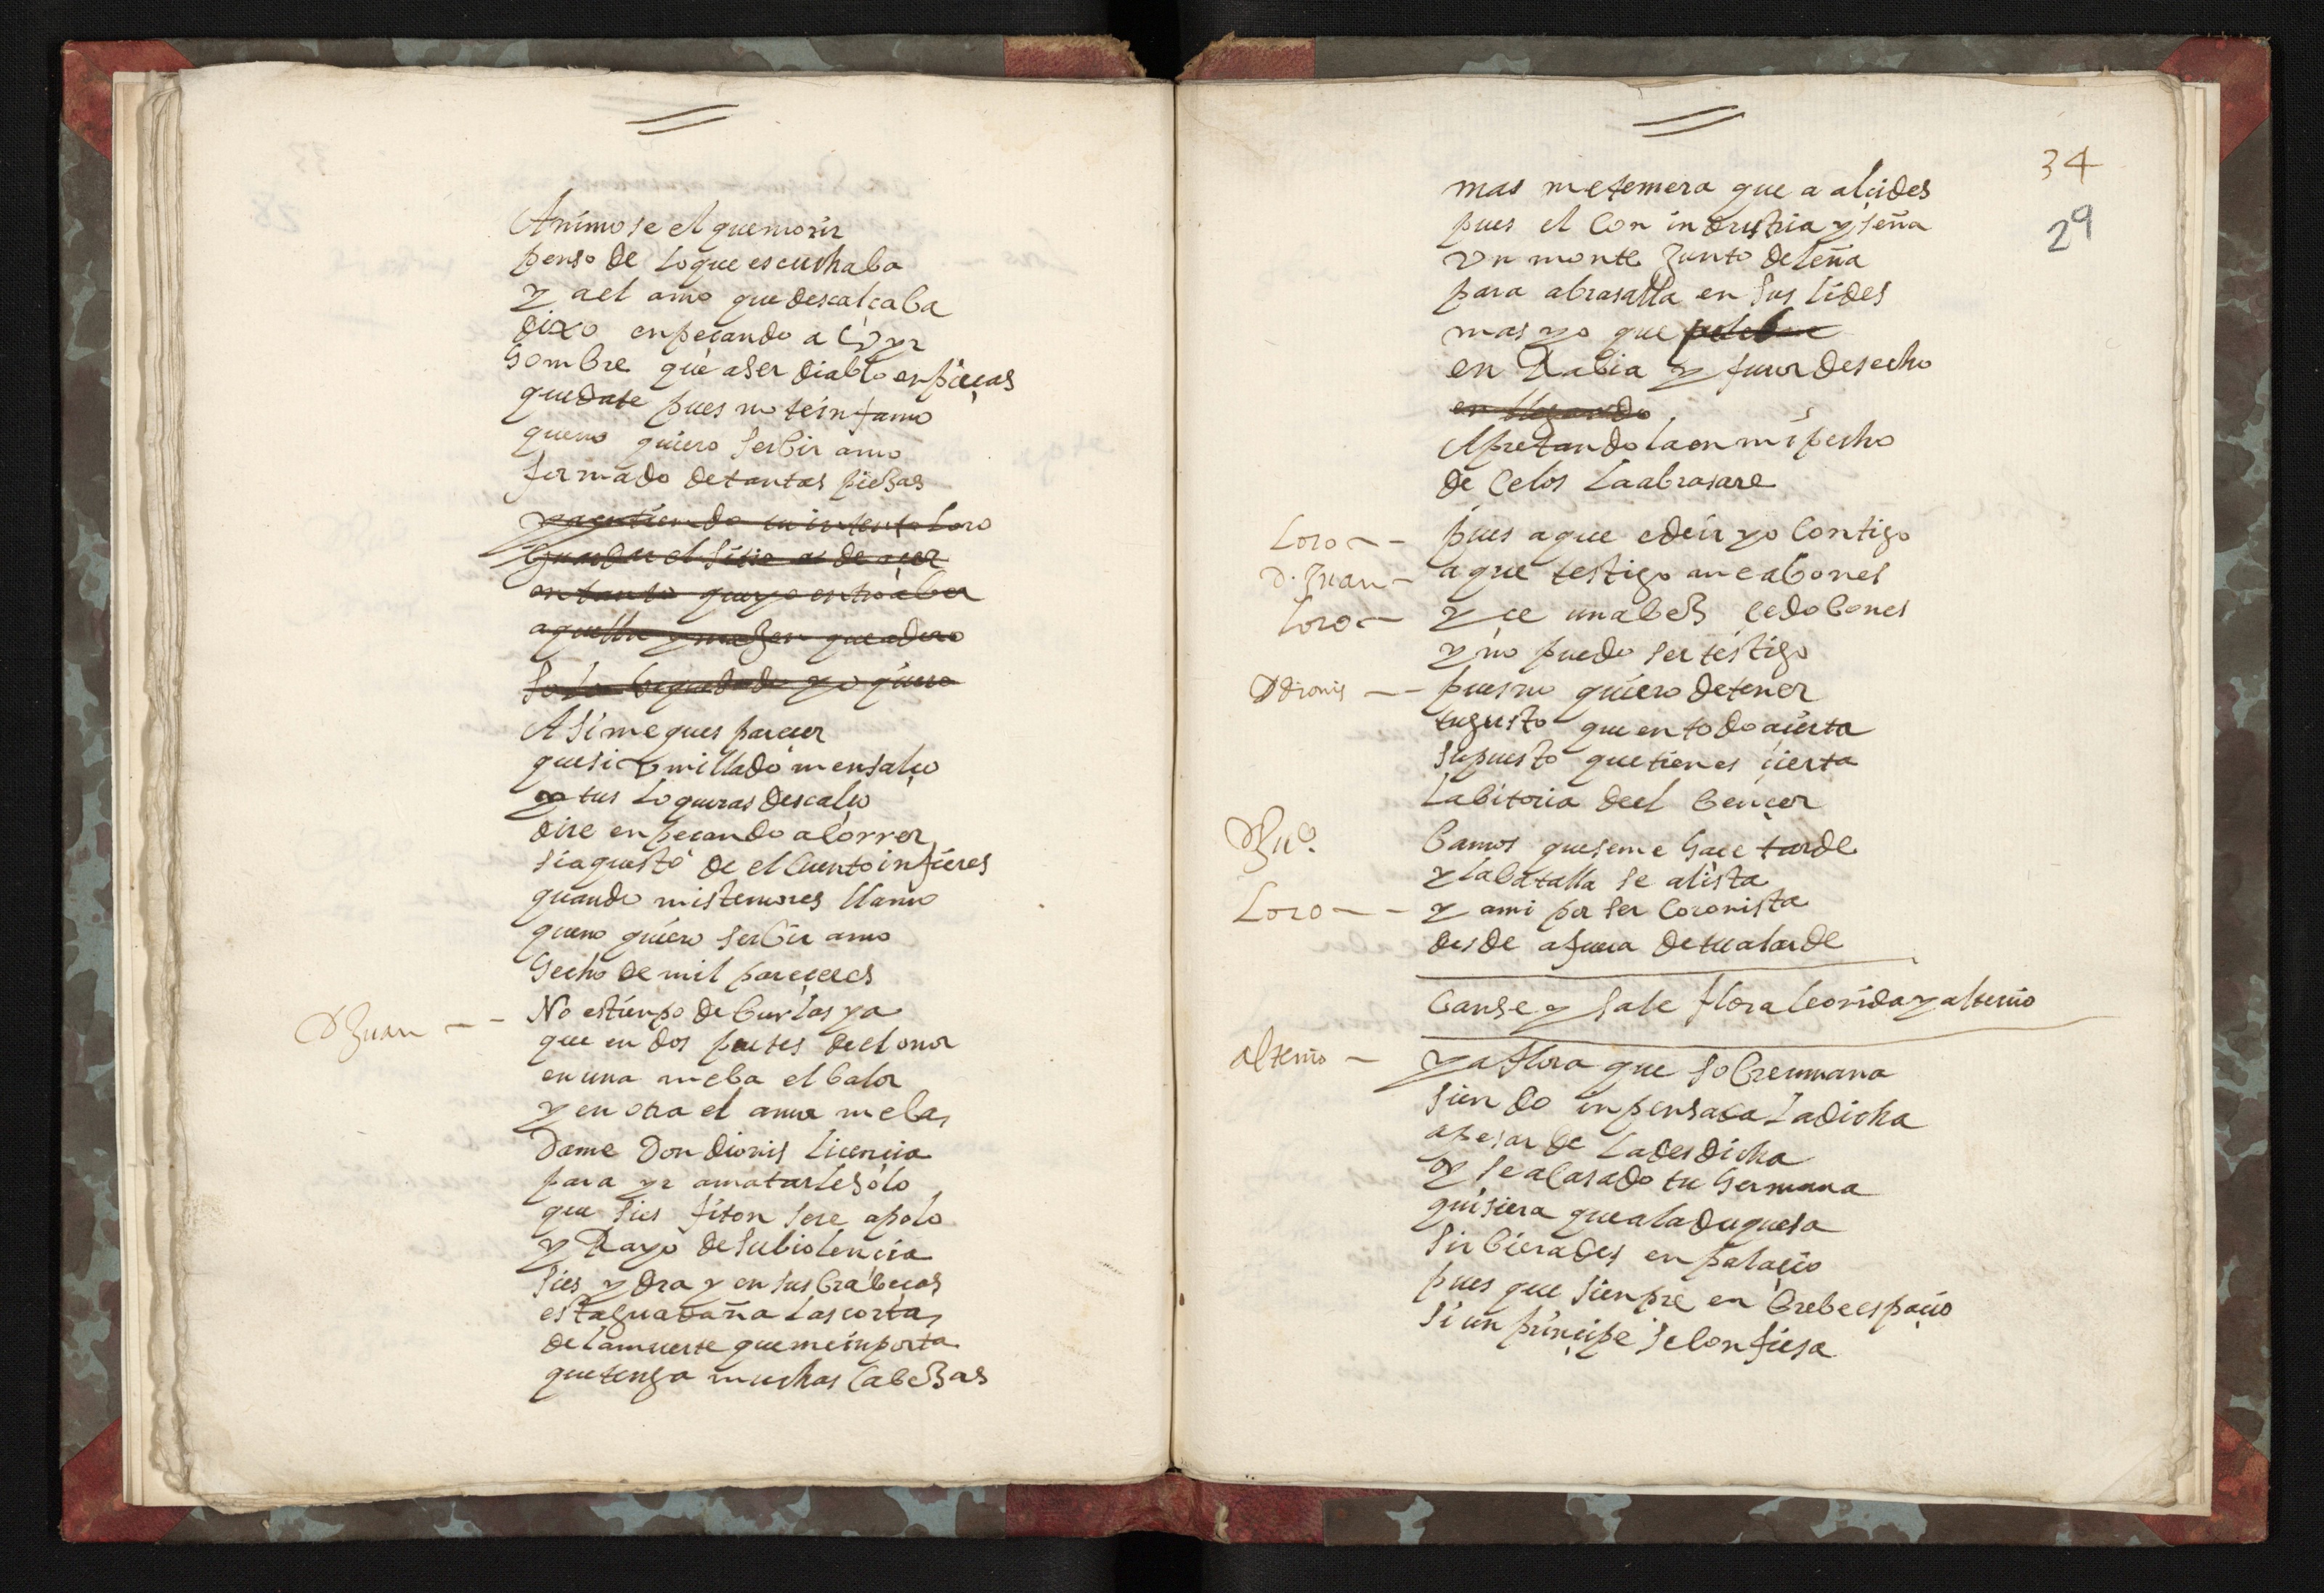 Animose el que morir
penso de loque escuchaba
y a el amo que descalçaba
dixo enpeçando a uyr
hombre que aser diablo enpieças
quedate pues no teinfamo
queno quiero serbir amo
formado detantas piezas
y agutiendo tu intento loro
guardar el sitio as de açer
entanto queyo entro aber
aquella ymagen que adoro
yo quiero
Asi me ques pareçer
quesi umillado mensalço
y tus loqueras descalço
dire enpeçando a correr
siagusto de el cuento infieres
quando mistemores llamo
queno quiero serbir amo
hecho de mil pareçeres
D Juan -- No estienpo de burlas ya
que en dos partes de el onor
en una meba el balor
y en otra el amor meba,
Dame Don dionis liçençia
para yr amatarlesolo
que sies fiton sere apolo
y Rayo desubiolençia
sies ydra y en sus brabeças
estaguadaña lascorta,
delamuerte quemeinporta
quetenga muchas cabezas
34
29
mas metemera que a alçides
pues el con industria y seña
un monte junto deleña
para abrasalla en sus lides
mas yo que
en Rabia y furor desecho
en llegando
Apretandolaen mi pecho
de celos laabrasare
Loro -- pues aque edeir yo contigo
D. Juan - aque testigo meabones
Loro -- yçe unabez çedobones
y no puedo ser testigo
D dionis -- puesno quiero detener
tugusto que entodoaçierta
supuesto quetienes çierta
labitoria deel bençer
D Ju.º bamos queseme haçe tarde
ylabatalla se alista
Loro -- y ami por ser coronista
desde afuera detualarde
banse y sale flora leonida y altenio
altenio - ya flora que soberana
siendo inpensada ladicha
apesar de ladesdicha
oy seacasado tu hermana
quisiera quealaduquesa
sirbierades en palaçio
pues que sienpre en brebeespaçio
si un prinçipe seconfiesa